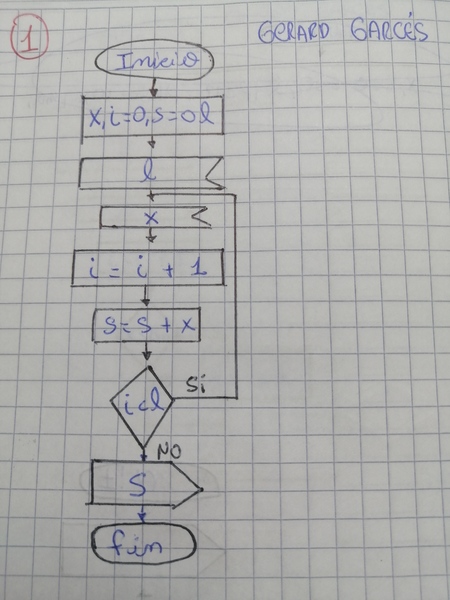 1
GERARD GARCÉS
Inicio
x,i=0,s=0 l
l
x
i = i + 1
S=S+x
i<l
Sí
NO
S
fin